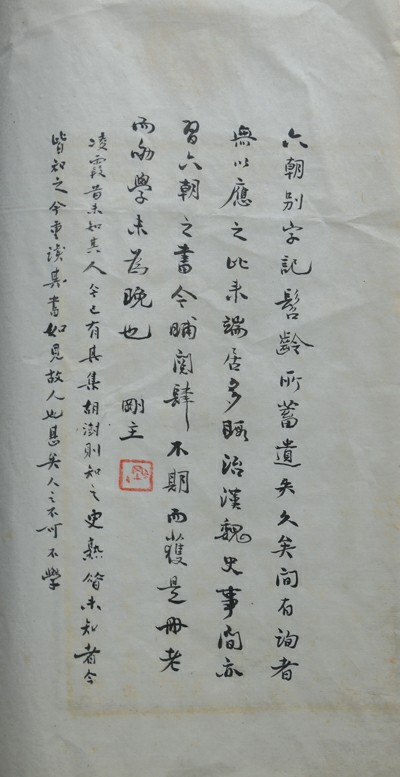 六朝别字記髫齡所蓄遺失久矣間有詢者
無以應之比来端居多暇治漢魏史事間亦
習六朝之書今晡閱肆不期而獲是冊老
而劬學未為晚也 剛主
凌霞昔未知其人今已有其集胡澍則知之更熟昔未知者今
皆知之今重讀其書如見故人也甚矣人之不可不學